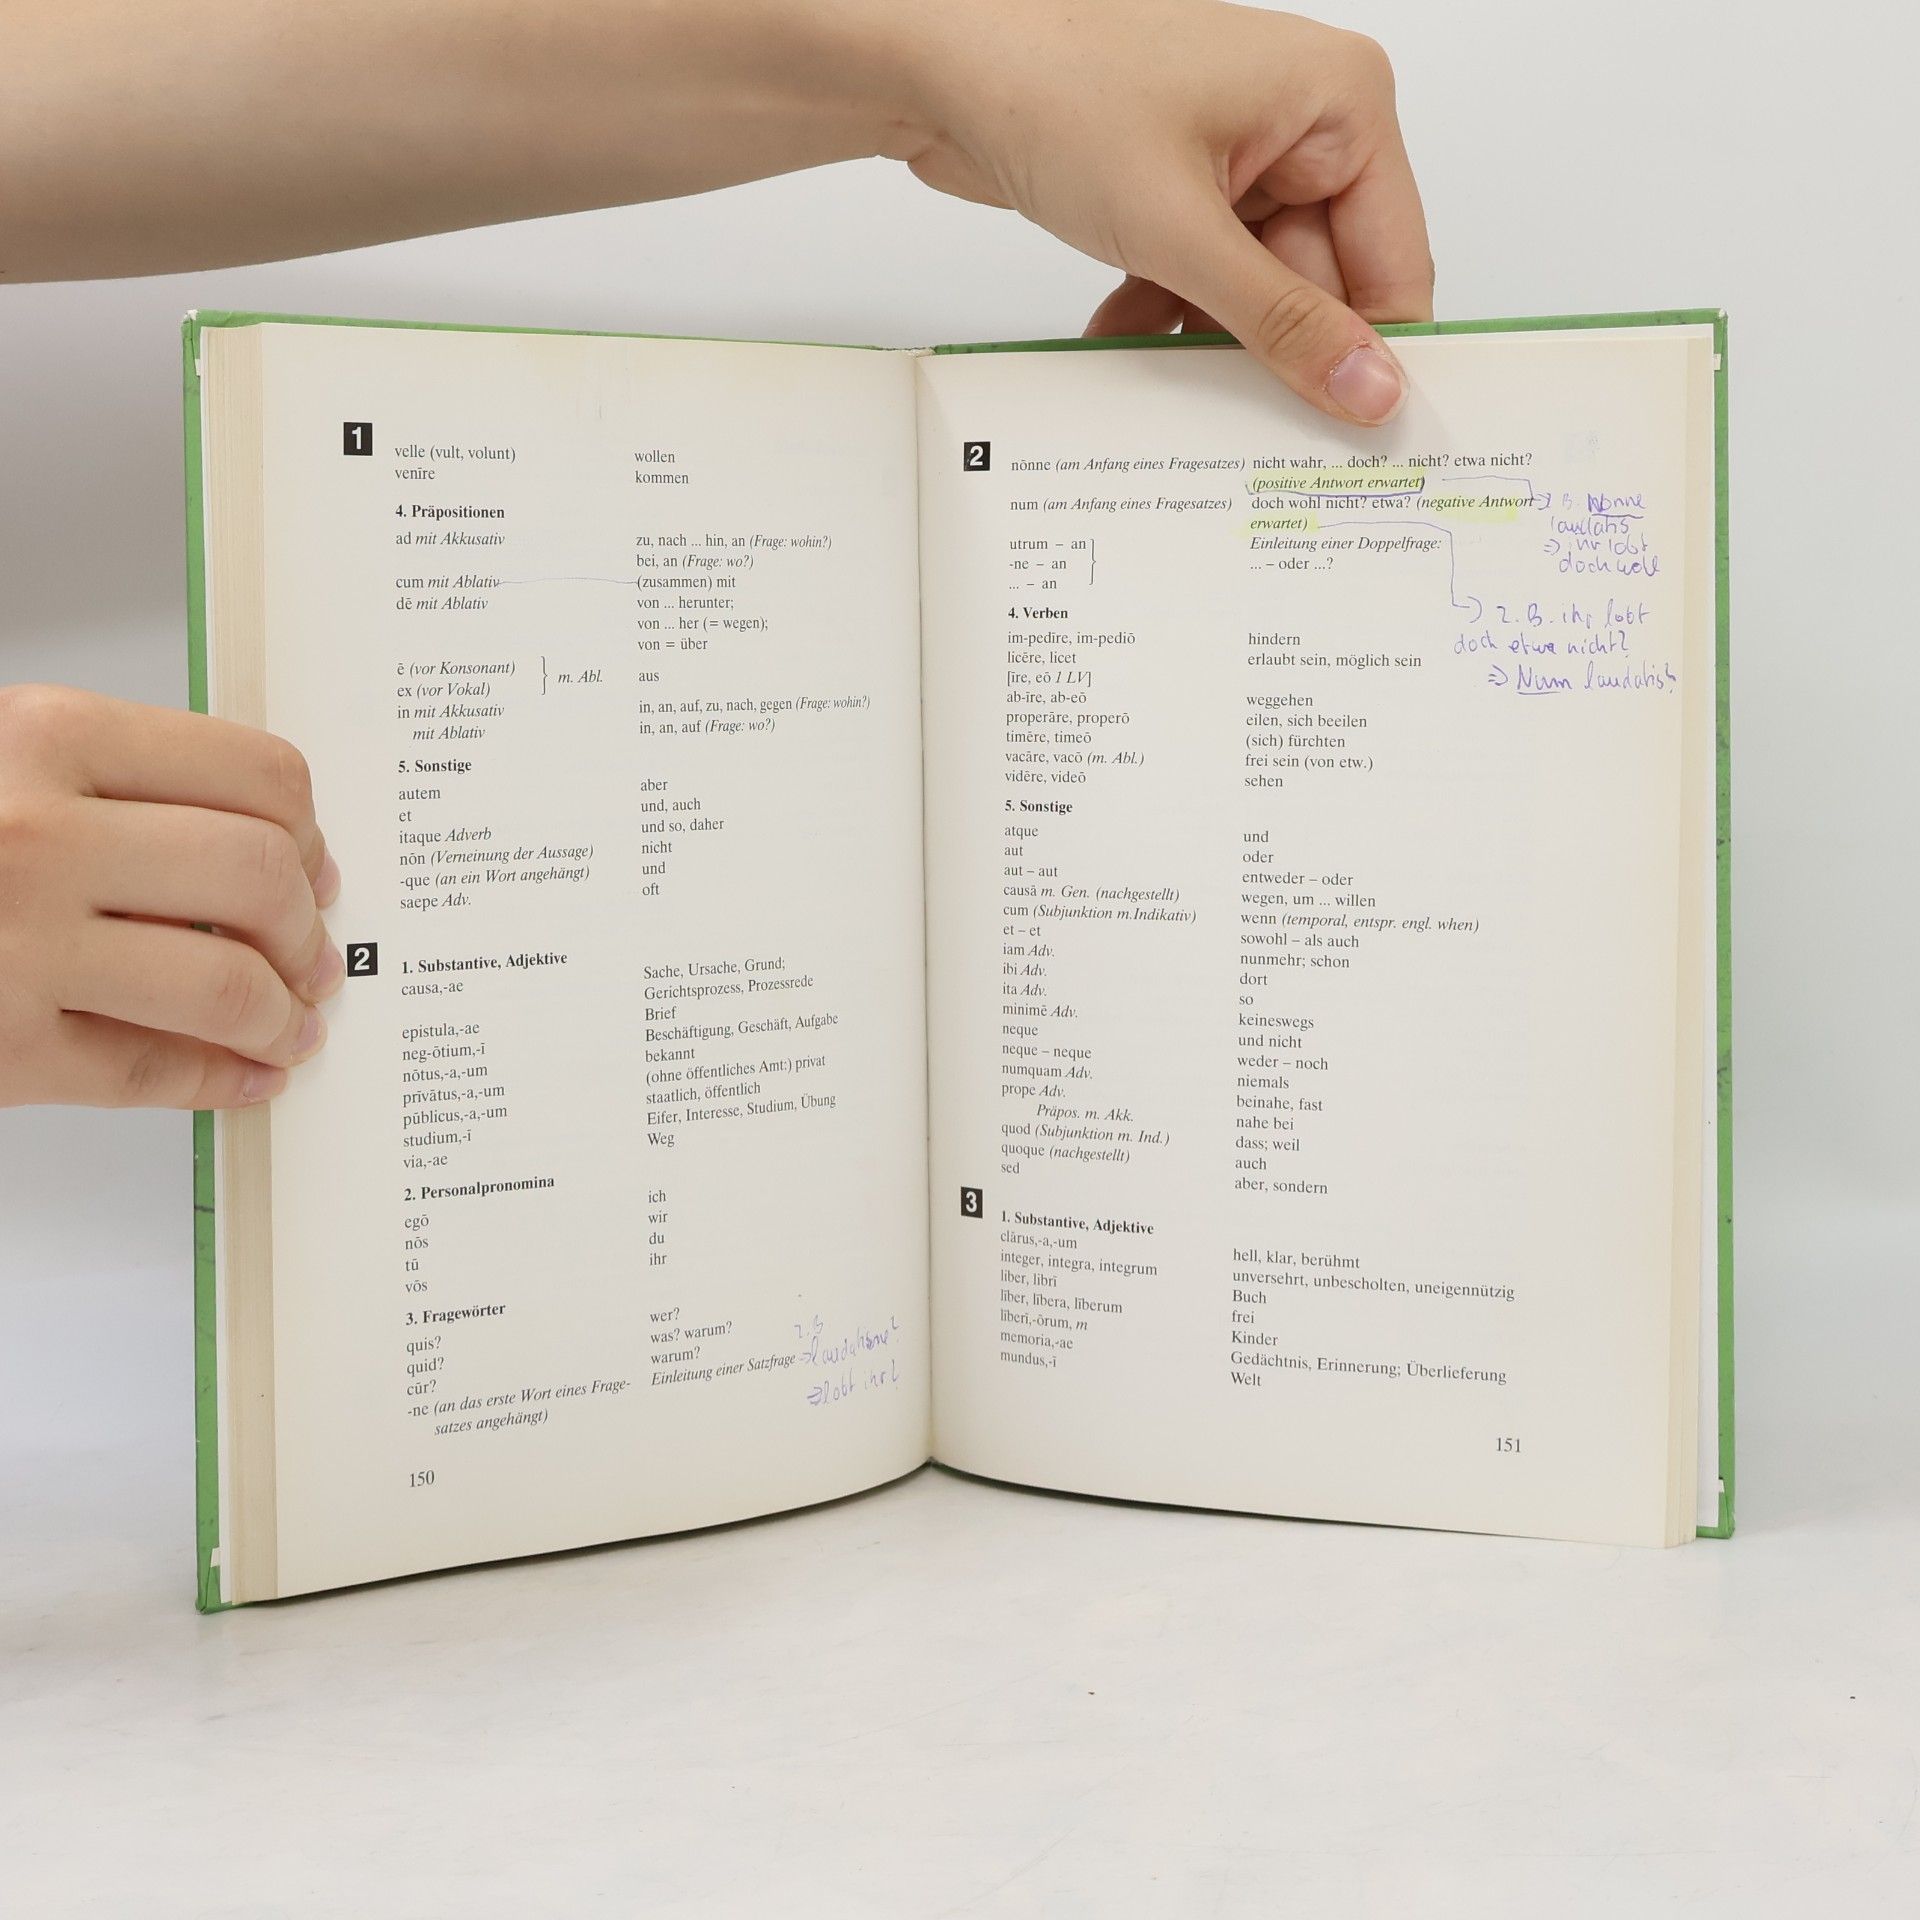 1
velle (vult, volunt) wollen
venīre kommen
4. Präpositionen
ad mit Akkusativ zu, nach ... hin, an (Frage: wohin?)
bei, an (Frage: wo?)
cum mit Ablativ (zusammen) mit
dē mit Ablativ von ... herunter;
von ... her (= wegen);
von = über
ē (vor Konsonant)
ex (vor Vokal) } m. Abl. aus
in mit Akkusativ in, an, auf, zu, nach, gegen (Frage: wohin?)
mit Ablativ in, an, auf (Frage: wo?)
5. Sonstige
autem aber
et und, auch
itaque Adverb und so, daher
nōn (Verneinung der Aussage) nicht
-que (an ein Wort angehängt) und
saepe Adv. oft
2
1. Substantive, Adjektive
causa,-ae Sache, Ursache, Grund;
Gerichtsprozess, Prozessrede
epistula,-ae Brief
neg-ōtium,-ī Beschäftigung, Geschäft, Aufgabe
nōtus,-a,-um bekannt
prīvātus,-a,-um (ohne öffentliches Amt:) privat
pūblicus,-a,-um staatlich, öffentlich
studium,-ī Eifer, Interesse, Studium, Übung
via,-ae Weg
2. Personalpronomina
egō ich
nōs wir
tū du
vōs ihr
3. Fragewörter
quis? wer?
quid? was? warum?
cūr? warum?
-ne (an das erste Wort eines Frage- Einleitung einer Satzfrage
satzes angehängt)
z.B
⇒ laudatisne?
⇒ lobt ihr?
150
2
nōnne (am Anfang eines Fragesatzes) nicht wahr, ... doch? ... nicht? etwa nicht?
(positive Antwort erwartet)
num (am Anfang eines Fragesatzes) doch wohl nicht? etwa? (negative Antwort
erwartet)
utrum – an Einleitung einer Doppelfrage:
-ne – an } ... – oder ...?
... – an
z.B. nonne
laudatis
⇒ ihr lobt
doch wohl
z.B. ihr lobt
doch etwa nicht?
⇒ Num laudatis?
4. Verben
im-pedīre, im-pediō hindern
licēre, licet erlaubt sein, möglich sein
[īre, eō 1 LV]
ab-īre, ab-eō weggehen
properāre, properō eilen, sich beeilen
timēre, timeō (sich) fürchten
vacāre, vacō (m. Abl.) frei sein (von etw.)
vidēre, videō sehen
5. Sonstige
atque und
aut oder
aut – aut entweder – oder
causā m. Gen. (nachgestellt) wegen, um ... willen
cum (Subjunktion m.Indikativ) wenn (temporal, entspr. engl. when)
et – et sowohl – als auch
iam Adv. nunmehr; schon
ibi Adv. dort
ita Adv. so
minimē Adv. keineswegs
neque und nicht
neque – neque weder – noch
numquam Adv. niemals
prope Adv. beinahe, fast
Präpos. m. Akk. nahe bei
quod (Subjunktion m. Ind.) dass; weil
quoque (nachgestellt) auch
sed aber, sondern
3
1. Substantive, Adjektive
clārus,-a,-um hell, klar, berühmt
integer, integra, integrum unversehrt, unbescholten, uneigennützig
liber, librī Buch
līber, lībera, līberum frei
līberī,-ōrum, m Kinder
memoria,-ae Gedächtnis, Erinnerung; Überlieferung
mundus,-ī Welt
151